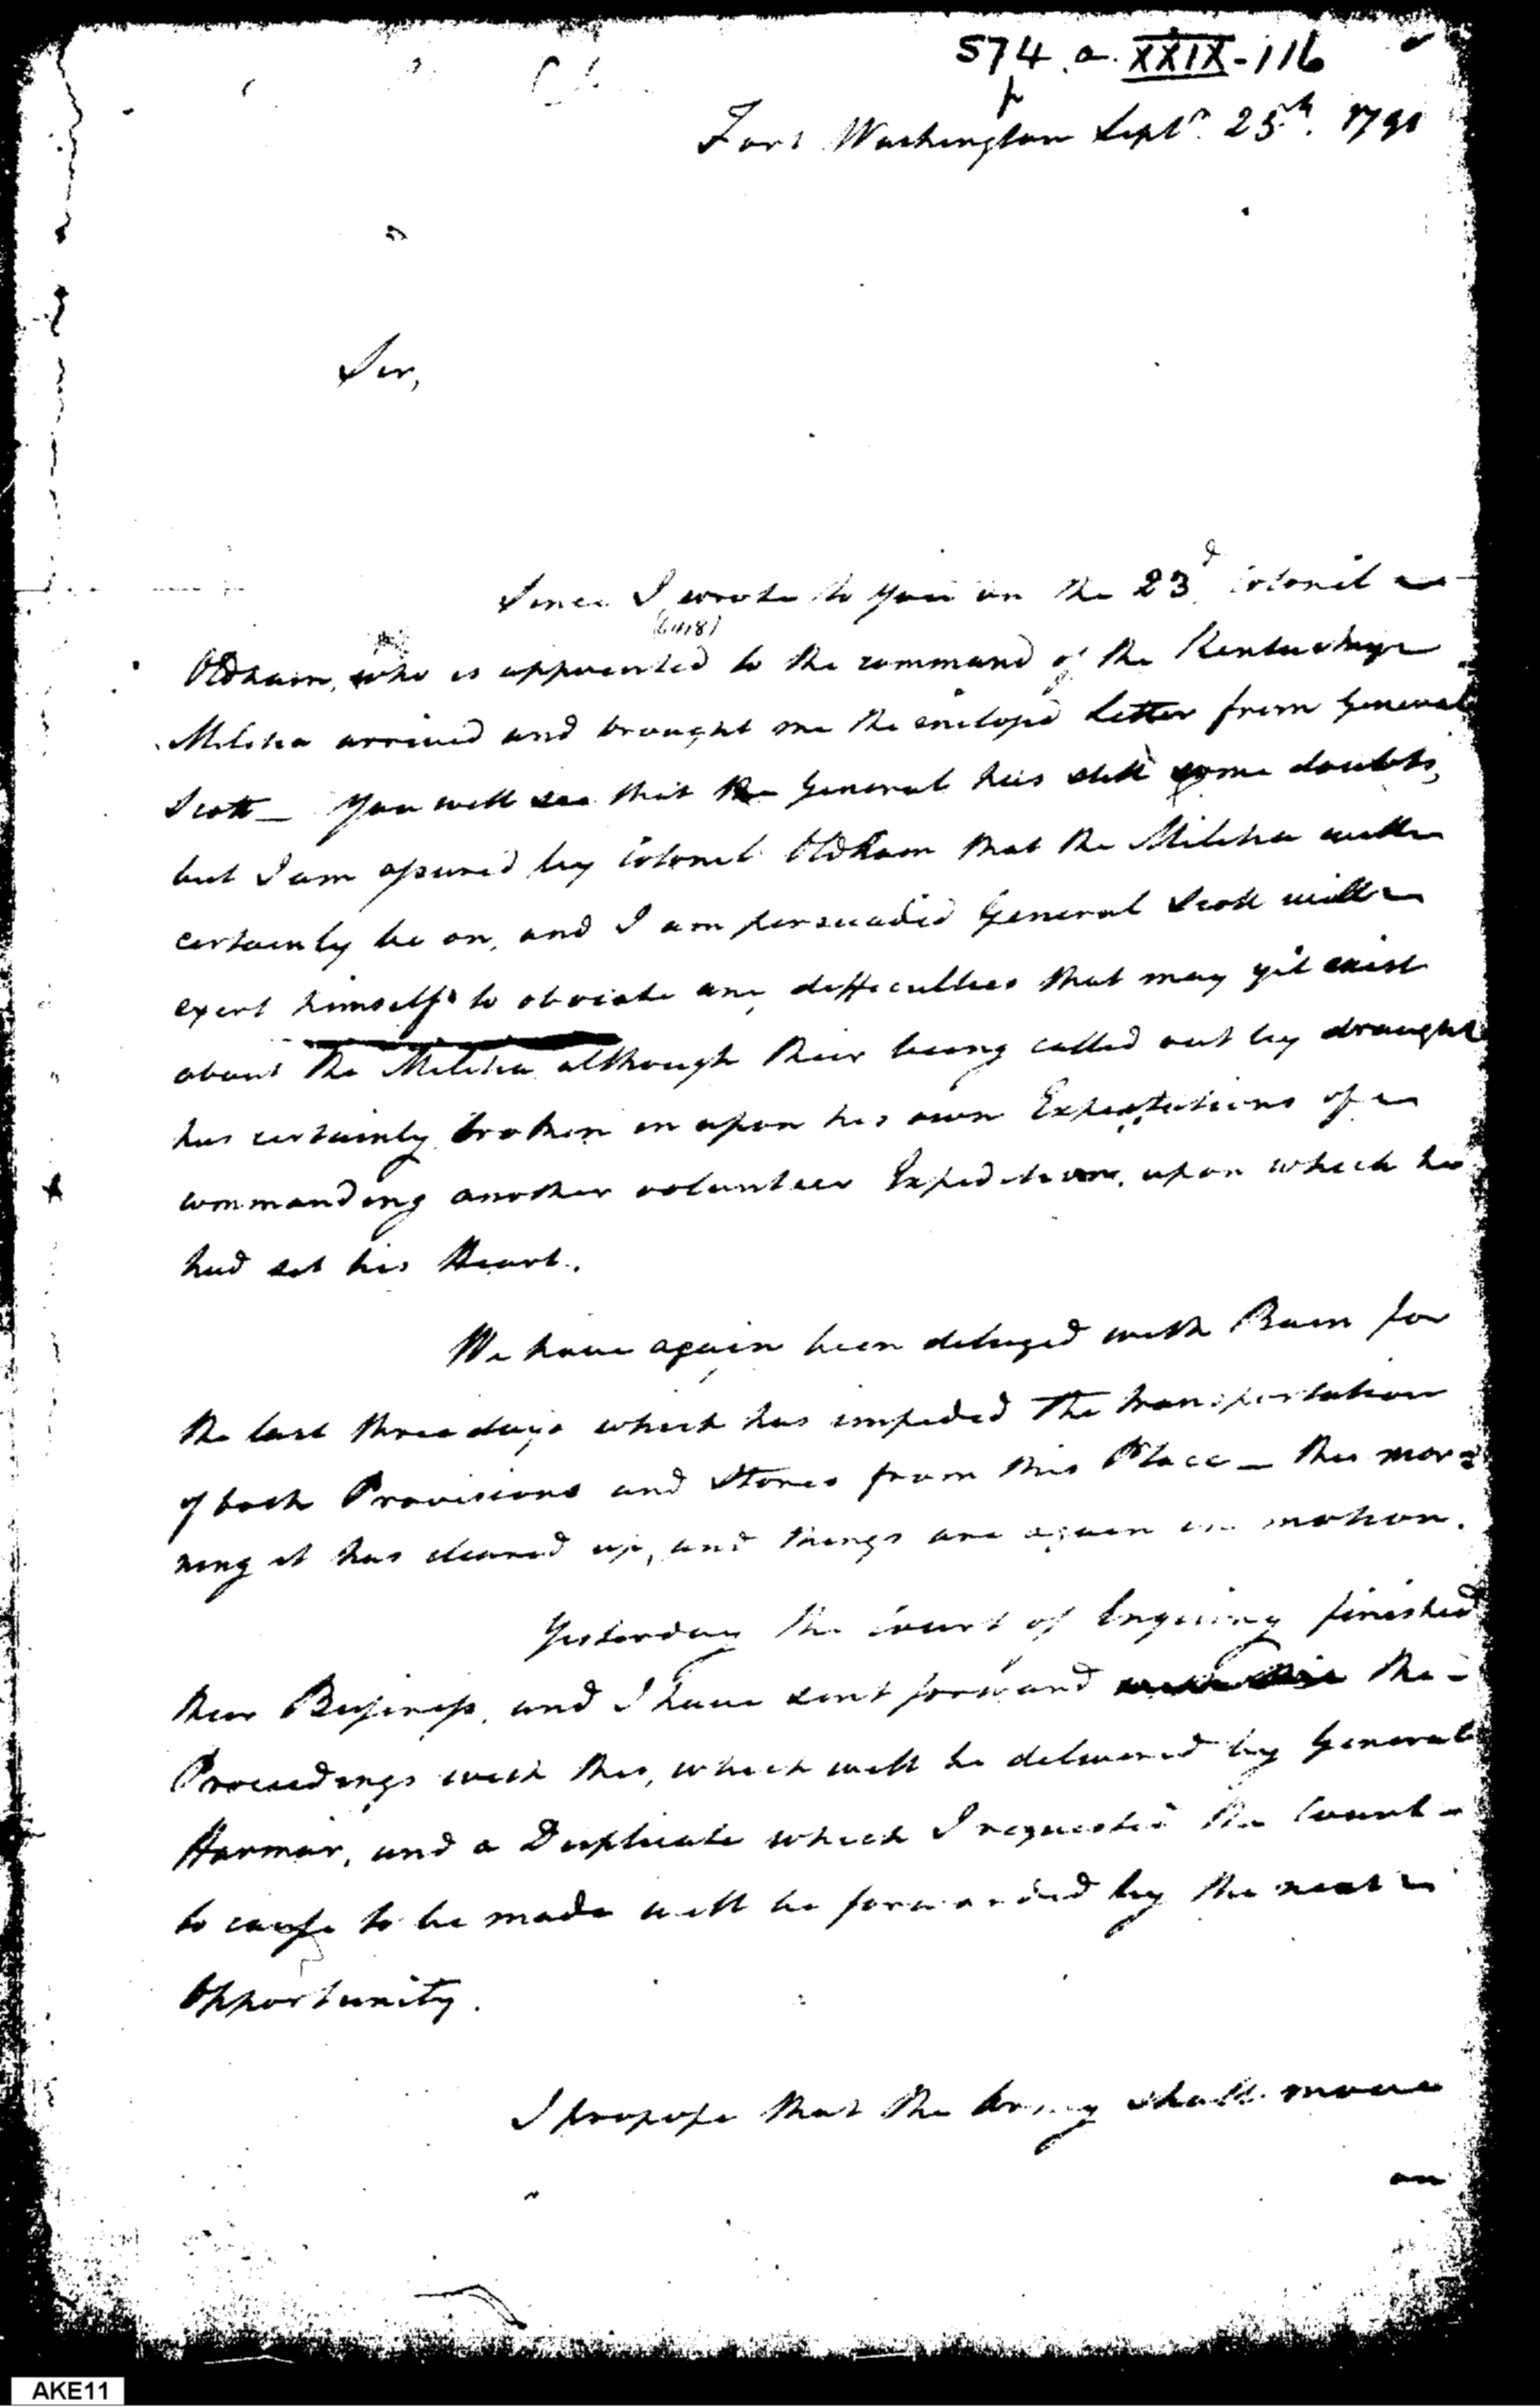 574 a. XXIX-116
Fort Washington Sept^r. 25th. 1791
Sir,
Since I wrote to you on the 23d. Colonel
Oldham, who is appointed to the command of the Kentuckey
Militia arrived and brought me the enclosed Letter from General
Scott_ You will see that the General has still some doubts,
but I am assured by Colonel Oldham that the Militia will
certainly be on, and I am persuaded General Scott will
exert himself to obviate any difficulties that may yet exist
about the Militia although their being called out by draught
has certainly broken in upon his own Expectations of
commanding another volunteer Expedition, upon which he
had set his Heart.
We have again been deluged with Rain for
the last three days which has impeded the transportation
of both Provisions and Stores from this Place_ this mor=
ning it has cleared up, and things are again in motion.
Yesterday the Court of Enquiry finished
their Business, and I have sent forward the
Proceedings with this, which will be delivered by General
Harmar, and a Duplicate which I requested the Court
to cause to be made will be forwarded by the next
Opportunity.
I propose that the Army shall move
on
AKE11